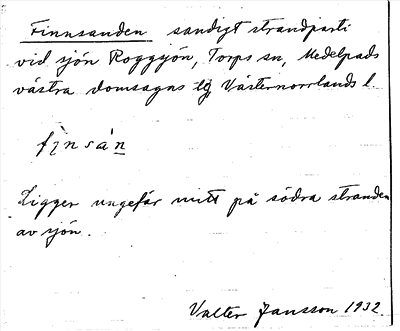 Finnsanden sandigt strandparti
vid sjön Roggsjön, Torps sn, Medelpads
västra domsagas tg Västernorrlands l.
fìnsán
Ligger ungefär mitt på södra stranden
av sjön.
Valter Jansson 1932.